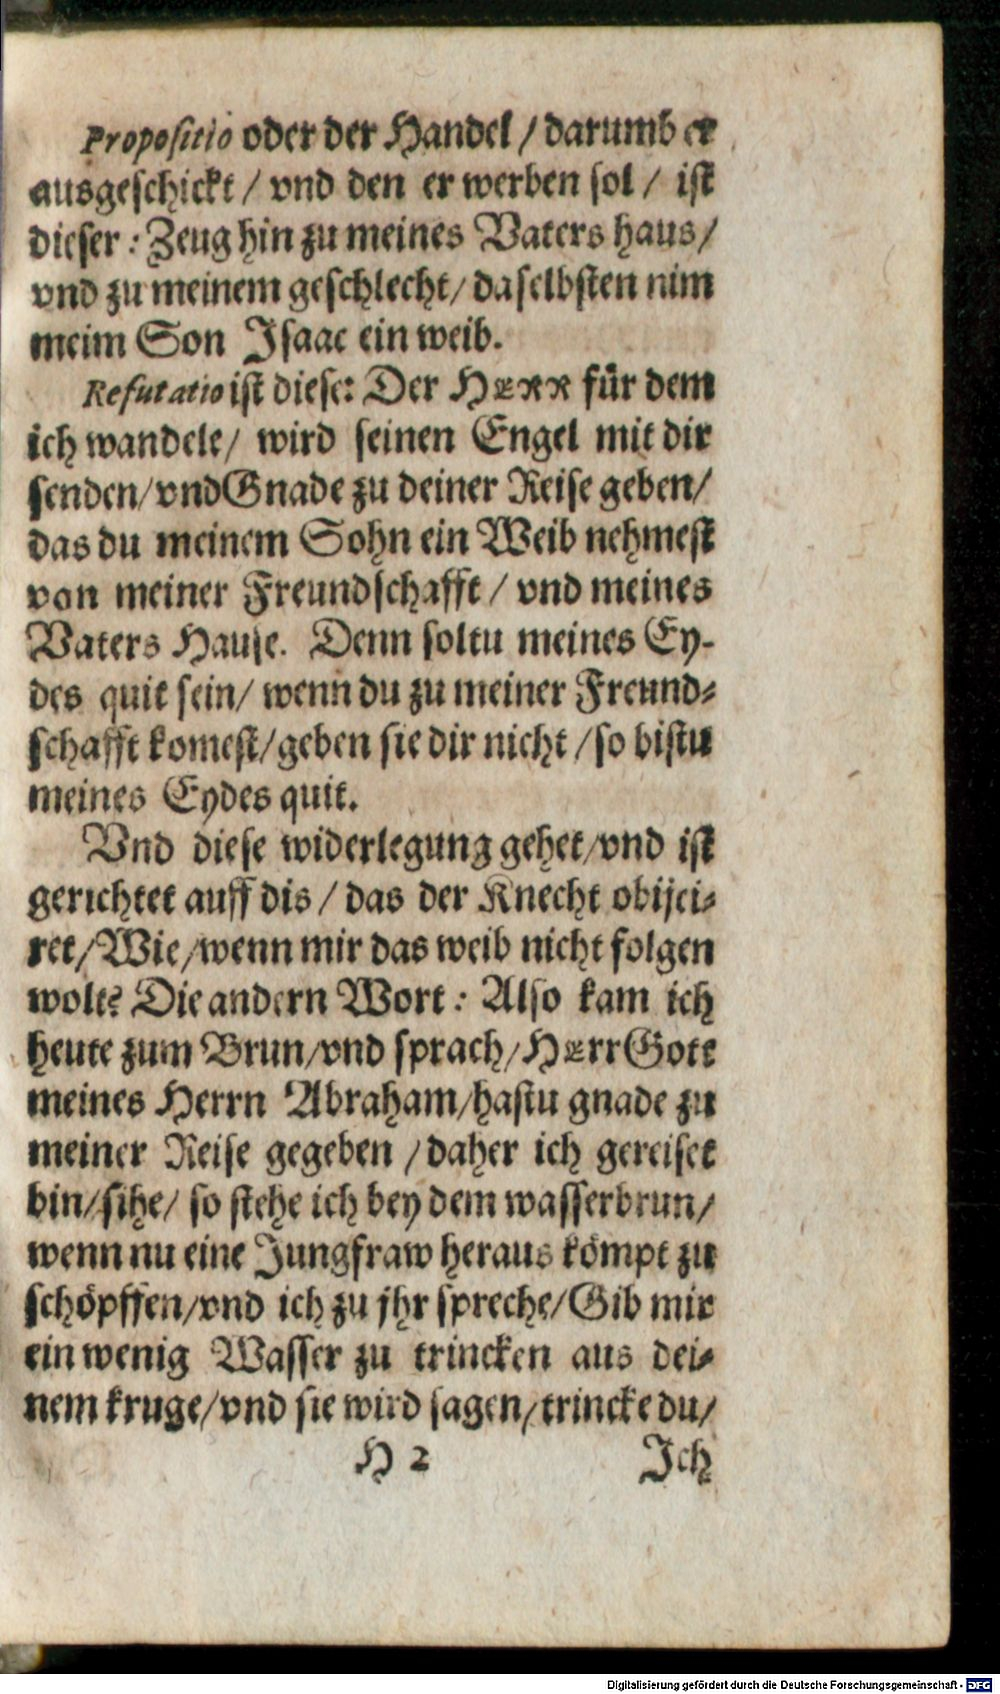 Propositio oder der Handel / darumb er
ausgeschickt / vnd den er werben sol / ist
dieser : Zeug hin zu meines Vaters haus /
vnd zu meinem geschlecht / daselbsten nim
meim Son Isaac ein weib.
Refutatio ist diese: Der HERR für dem
ich wandele / wird seinen Engel mit dir
senden / vnd Gnade zu deiner Reise geben /
das du meinem Sohn ein Weib nehmest
von meiner Freundschafft / vnd meines
Vaters Hause. Denn soltu meines Ey-
des quit sein / wenn du zu meiner Freund-
schafft komest / geben sie dir nicht / so bistu
meines Eydes quit.
Vnd diese widerlegung gehet / vnd ist
gerichtet auff dis / das der Knecht obijci-
ret / Wie / wenn mir das weib nicht folgen
wolt? Die andern Wort : Also kam ich
heute zum Brun / vnd sprach / HErr Gott
meines Herrn Abraham / hastu gnade zu
meiner Reise gegeben / daher ich gereiset
bin / sihe / so stehe ich bey dem wasserbrun /
wenn nu eine Jungfraw heraus kömpt zu
schöpffen / vnd ich zu jhr spreche / Gib mir
ein wenig Wasser zu trincken aus dei-
nem kruge / vnd sie wird sagen / trincke du /
H 2 Ich
Digitalisierung gefördert durch die Deutsche Forschungsgemeinschaft - DFG